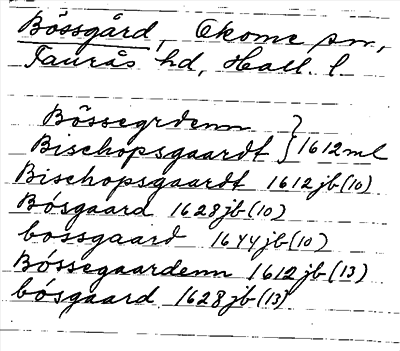 Bössgård, Okome sn,
Faurås hd, Hall. l.
Bössegrdenn }
Bischopsgaardt } 1612 ml
Bischopsgaardt 1612 jb (10)
Bósgaard 1628 jb (10)
bossgaard 1644 jb (10)
Bóssegaardenn 1612 jb (13)
bósgaard 1628 jb (13)